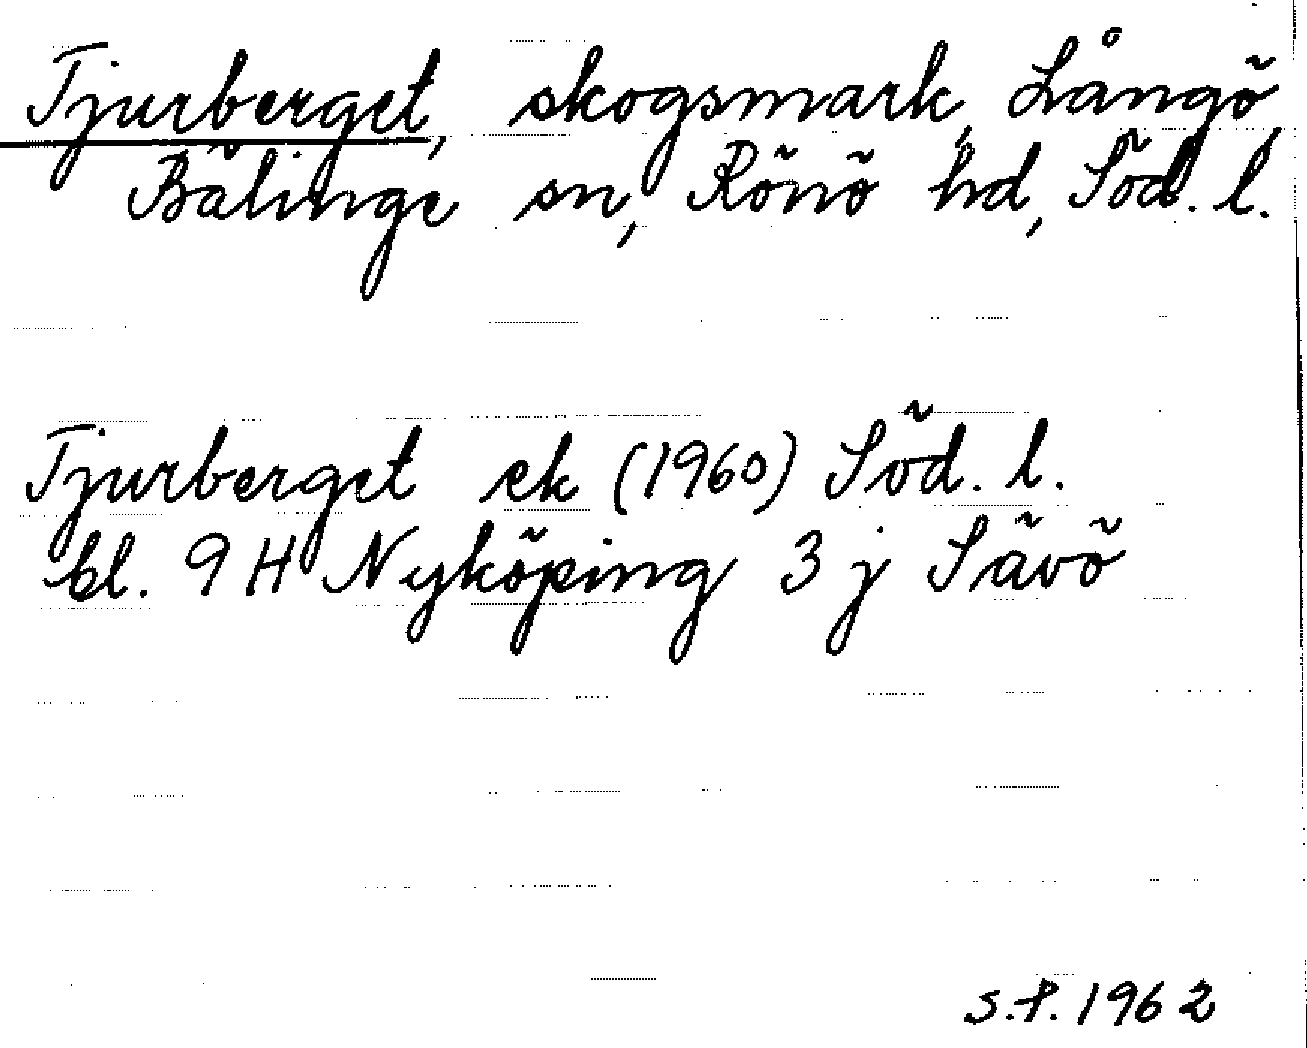 Tjurberget, skogsmark, Långö,
Bälinge sn, Rönö hd, Söd. l.
Tjurberget ek (1960) Söd. l.
bl. 9 H Nyköping 3 j Sävö
S.P. 1962